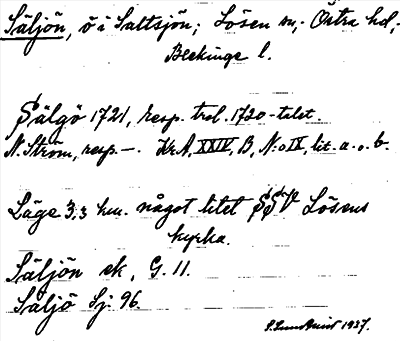 Säljön, ö i Saltsjön; Lösen sn,. Östra hd,.
Blekinge l.
Sälgö 1721, resp. trol. 1720-talet.
N. Ström, resp. –. Kr.A, XXIV, B, N:o IX, lit. a. o. b.
Läge 3.3 km. något litet SSV Lösens
kyrka.
Säljön ek. G. 11.
Säljö Sj. 96.
S. Lundkvist 1937.